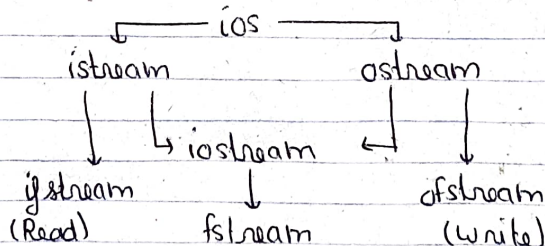 ios
istream ostream
iostream
ifstream ofstream
(Read) fstream (Write)